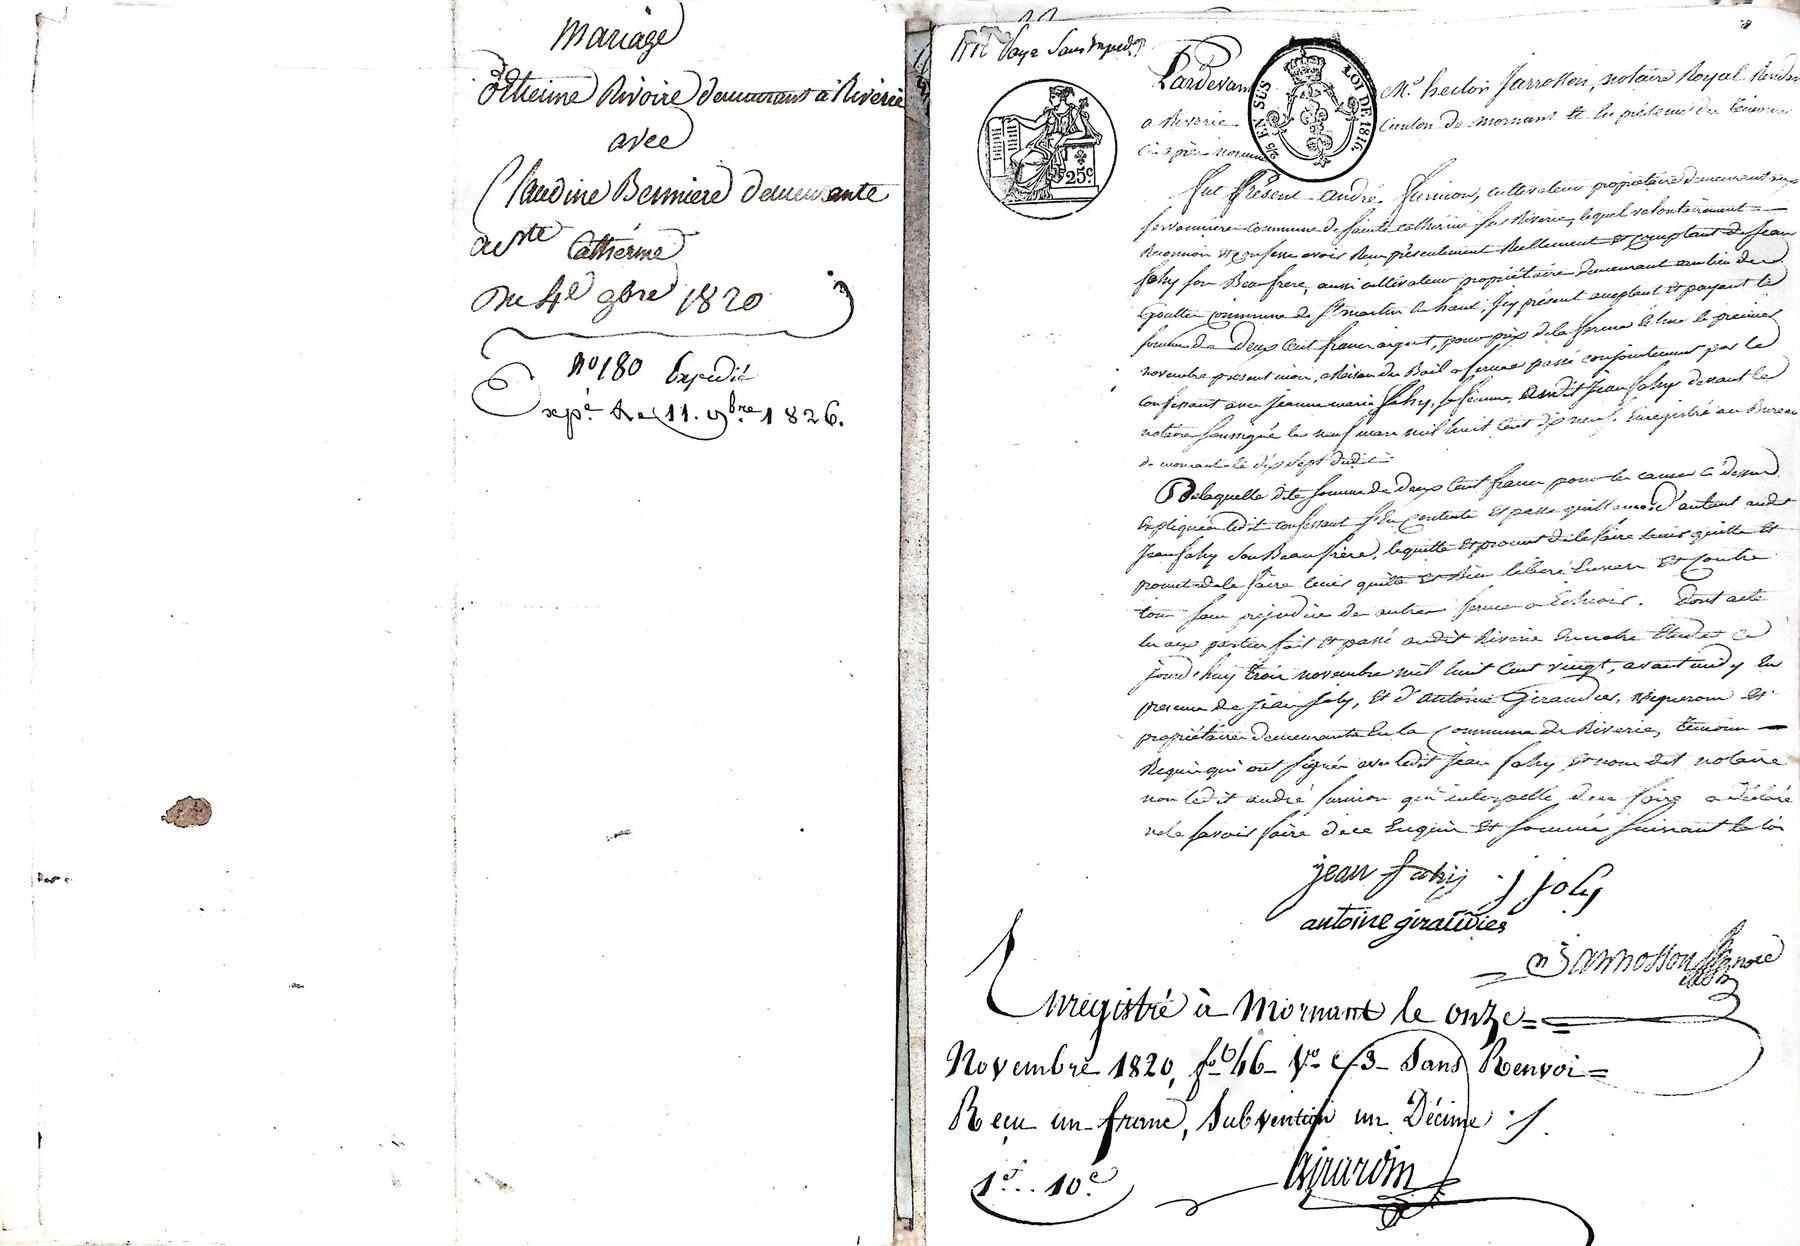 Mariage
d'Etienne Rivoire demeurant à Riverie
avec
Claudine Bernniere demeurante
a Ste Catherine
Du 4e 9bre 1820
no 180 Expedié
Expé. le 11. 9bre 1826.
Pardevant Me hector Jarrosson, notaire Royal Residant
a Riverie Canton de Mornant Et En présence des témoins
ci après nommés
2/5 EN SUS
LOI DE 1816
25c
fut Présent andré furnion, cultivateur propriétaire demeurant aux
commune de Sainte Catherine sur Riverie, lequel volontairement
Reconnoit et confesse avoir Reçu présentement Reellement et comptant de Jean
fahy son Beaufrere, aussi cultivateur propriétaire demeurant au lieu de
Goutter commune de St martin le haut, Icy présent acceptant Et payant la
somme de Deux Cent francs argent, pour prix de la ferme échue le premier
novembre présent mois, a Raison du Bail a ferme passé conjointement par le
confessant avec Jeanne marie fahy, sa femme, audit Jean fahy devant le
notaire soussigné le neuf mars mil huit Cent dix neuf. Enregistré au Bureau
de mornant le dix sept dudit
De laquelle dite somme de deux Cent francs pour les causes ci dessus
Expliquées ledit confessant s'En contente Et passe quittance d'autant audit
Jean fahy son Beaufrère, le quitte Et promet de le faire tenir quitte Et
promet de le faire tenir quitte Et Bien libéré Envers Et Contre
tous sans préjudice des autres fermes a Echeoir. Dont acte
lu aux parties fait Et passé audit Riverie En notre Etude Ce
jourd'huy trois novembre mil huit Cent vingt, avant midy En
presence de Jean Joly, Et d'antoine Giraudier, vignerons Et
propriétaires demeurants En la Commune de Riverie, temoins
Requis qui ont signés avec ledit Jean fahy, et nous dit notaire
non ledit andré furnion qui interpellé d'en faire a déclaré
ne le savoir faire de ce Enquis Et sommé suivant la loi
jean fahy j joly
antoine giraudier
Jarrosson nore
Enregistré à Mornant le onze
Novembre 1820, fo 46 Vo C 3 Sans Renvoi
Reçu un franc, Subvention un Décime
1f.. 10c
Girardin